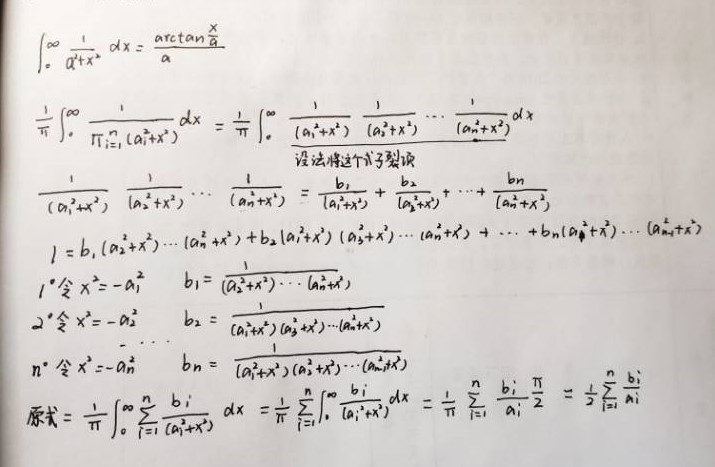 ∫₀^∞ 1/(a²+x²) dx = (arctan x/a)/a
1/π ∫₀^∞ 1/(∏ᵢ₌₁ⁿ(aᵢ²+x²)) dx = 1/π ∫₀^∞ 1/(a₁²+x²) 1/(a₂²+x²) ⋯ 1/(aₙ²+x²) dx
设法将这个式子裂项
1/(a₁²+x²) 1/(a₂²+x²) ⋯ 1/(aₙ²+x²) = b₁/(a₁²+x²) + b₂/(a₂²+x²) + ⋯ + bₙ/(aₙ²+x²)
1 = b₁(a₂²+x²)⋯(aₙ²+x²) + b₂(a₁²+x²)(a₃²+x²)⋯(aₙ²+x²) + ⋯ + bₙ(a₁²+x²)⋯(aₙ₋₁²+x²)
1° 令 x²=-a₁² b₁ = 1/((a₂²+x²)⋯(aₙ²+x²))
2° 令 x²=-a₂² b₂ = 1/((a₁²+x²)(a₃²+x²)⋯(aₙ²+x²))
⋯
n° 令 x²=-aₙ² bₙ = 1/((a₁²+x²)(a₂²+x²)⋯(aₙ₋₁²+x²))
原式 = 1/π ∫₀^∞ ∑ᵢ₌₁ⁿ bᵢ/(aᵢ²+x²) dx = 1/π ∑ᵢ₌₁ⁿ ∫₀^∞ bᵢ/(aᵢ²+x²) dx = 1/π ∑ᵢ₌₁ⁿ bᵢ/aᵢ π/2 = 1/2 ∑ᵢ₌₁ⁿ bᵢ/aᵢ